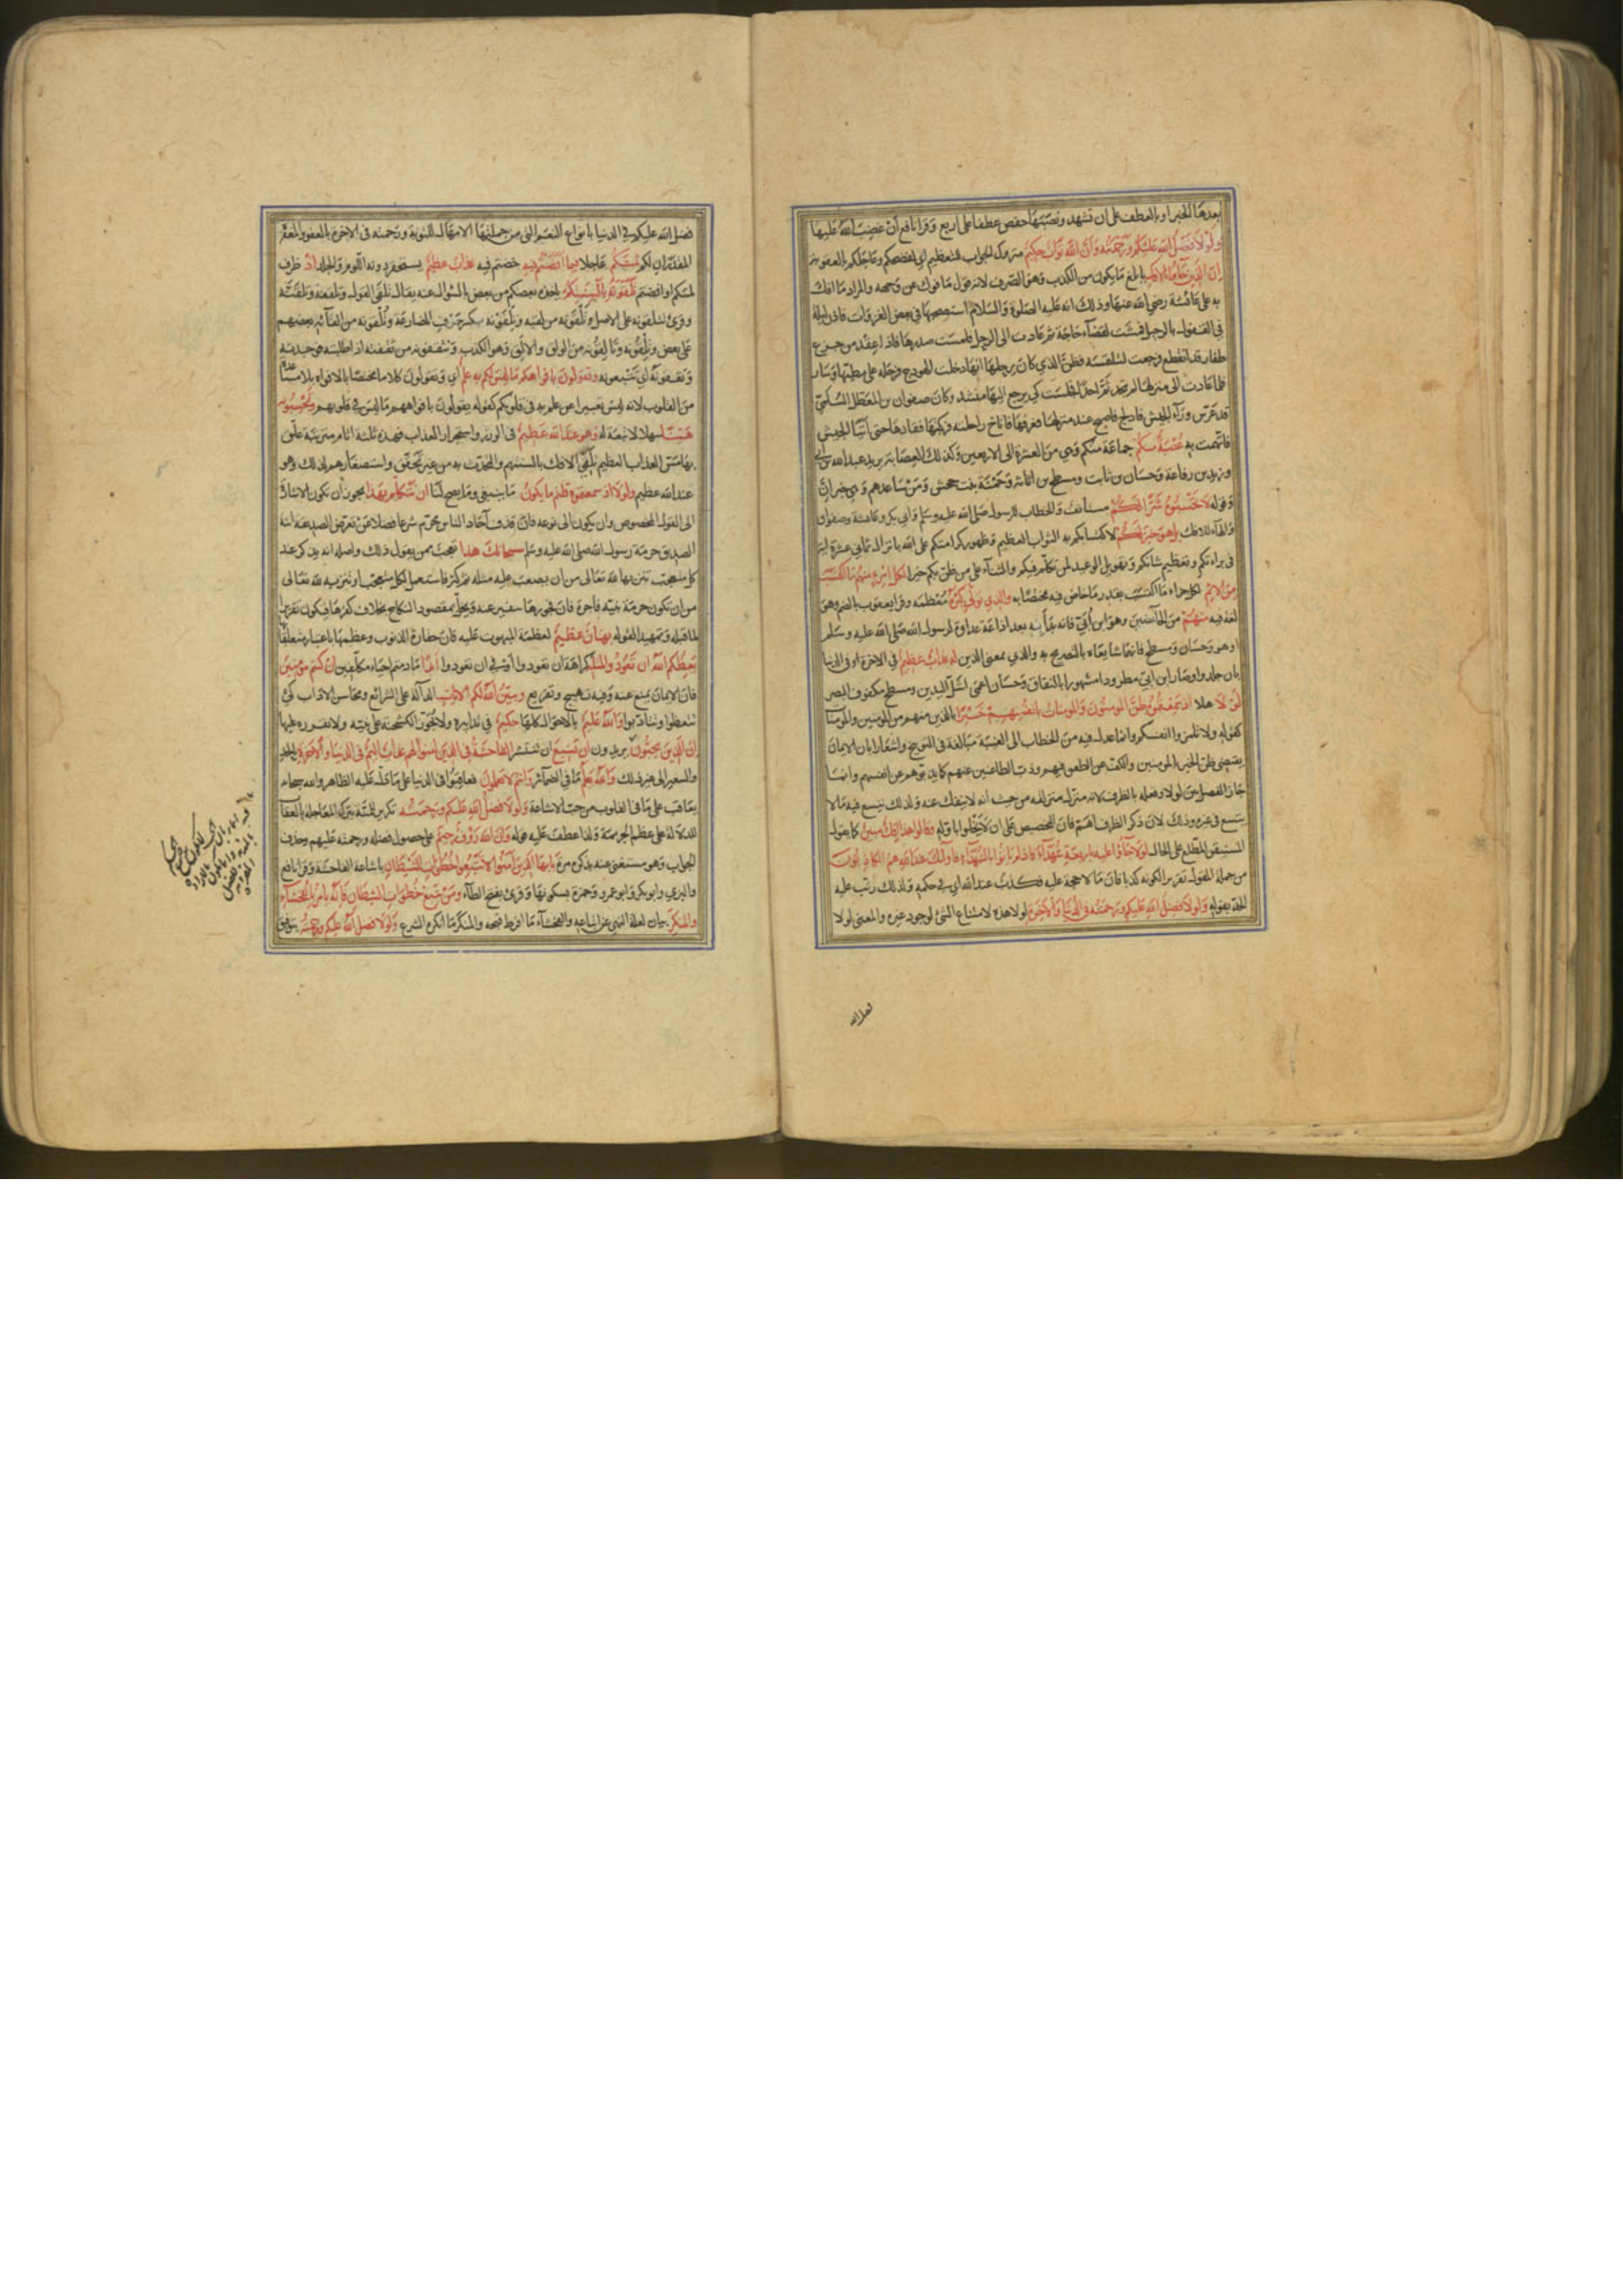 بعدها الخبر او بالعطف على ان تشهد ونصبتها حفص عطفا على اربع وقرا نافع ان غضب الله عليها
ولولا فضل الله عليكم ورحمته وان الله تواب حكيم متروك الجواب للتعظيم اي لفضحكم وعاجلكم بالعقوبة
ان الذين جاؤا بالافك بابلغ ما يكون من الكذب وهو الصرف لانه قول مافوك عن وجهه والمراد ما افك
به على عائشة رضي الله عنها وذلك انه عليه الصلوة والسلام استصحبها في بعض الغزوات فاذن ليلة
في القفول بالرحيل فمشت لقضآء حاجة ثم عادت الى الرحل فلمست صدرها فاذا عقد من جزع
ظفار قد انقطع فرجعت لتلتمسه فظن الذي كان يرحلها انها دخلت الهودج فرحله على مطيتها وسار
فلما عادت الى منزلها لم تجد ثم احدا فجلست كي يرجع اليها منشد وكان صفوان بن المعطل السلمي
قد عرس ورآء الجيش فادلج فاصبح عند منزلها فعرفها فاناخ راحلته فركبتها فقادها حتى اتيا الجيش
فاتهمت به عصبة منكم جماعة منكم وهي من العشرة الى الاربعين وكذلك العصابة يريد عبد الله بن ابي
وزيد بن رفاعة وحسان بن ثابت ومسطح بن اثاثة وحمنة بنت جحش ومن ساعدهم وهي خبر ان
وقوله لا تحسبوه شرا لكم مستانف والخطاب للرسول صلى الله عليه وسلم وابي بكر وعائشة وصفوان
والهآء للافك بل هو خير لكم لاكتسابكم به الثواب العظيم وظهور كرامتكم على الله بانزال ثماني عشرة اية
في براءتكم وتعظيم شانكم وتهويل الوعيد لمن تكلم فيكم والثنآء على من ظن بكم خيرا لكل امرئ منهم ما اكتسب
من الاثم لكل جزاء ما اكتسب بقدر ما خاض فيه مختصا به والذي تولى كبره معظمه وقرا يعقوب بالضم وهو
لغة فيه منهم من الخآئضين وهو ابن ابي فانه بدأ به بعد اذاعة عداوة لرسول الله صلى الله عليه وسلم
او هو وحسان ومسطح فانهما شايعاه بالتصريح به والذي بمعنى الذين له عذاب عظيم في الاخرة او في الدنيا
بان جلدوا وصار ابن ابي مطرودا مشهورا بالنفاق وحسان اعمى اشل اليدين ومسطح مكفوف البصر
لولا هلا اذ سمعتموه ظن المؤمنون والمومنات بانفسهم خيرا بالذين منهم من المومنين والمومنات
كقوله ولا تلمزوا انفسكم وانما عدل فيه من الخطاب الى الغيبة مبالغة في التوبيخ واشعارا بان الايمان
يقتضي ظن الخير بالمومنين والكف عن الطعن فيهم وذب الطاعنين عنهم كما يذبونهم عن انفسهم وانما
جاز الفصل بين لولا وفعله بالظرف لانه منزل منزلته من حيث انه لا ينفك عنه ولذلك يتسع فيه ما لا
يتسع في غيره وذلك لان ذكر الظرف اهم فان التخصيص على ان لا يخلوا باوله وقالوا هذا افك مبين كما يقول
المستيقن المطلع على الحال لولا جآؤا عليه باربعة شهدآء فاذ لم ياتوا بالشهدآء فاولئك عند الله هم الكاذبون
من جملة المقول تقريرا لكونه كذبا فان ما لا حجة عليه فكذب عند الله اي في حكمه ولذلك رتب عليه
الحد بقوله ولولا فضل الله عليكم ورحمته في الدنيا والاخرة لولا هذه لامتناع الشئ لوجود غيره والمعنى لولا
فضل الله
فضل الله عليكم في الدنيا بانواع النعم التي من جملتها الامهال للتوبة ورحمته في الاخرة بالعفو والمغفرة
المقدران لكم لمسكم عاجلا فيما افضتم فيه خضتم فيه عذاب عظيم يستحقر دونه اللوم والجلد اذ ظرف
لمسكم او افضتم تلقونه بالسنتكم ياخذه بعضكم من بعض بالسؤال عنه يقال تلقى القول وتلقفه وتلقنه
وقرئ تتلقونه على الاصل وتلقونه من لقيه وتلقونه بكسر حرف المضارعة وتلقونه من القآئه بعضهم
على بعض وتلقونه وتالقونه من الولق والالق وهو الكذب وتثقفونه من ثقفته اذا طلبته فوجدته
وتقفونه اي تتبعونه وتقولون بافواهكم ما ليس لكم به علم اي وتقولون كلاما مختصا بالافواه بلا مساعدة
من القلوب لانه ليس تعبيرا عن علم به في قلوبكم كقوله يقولون بافواههم ما ليس في قلوبهم وتحسبونه
هينا سهلا لا تبعة له وهو عند الله عظيم في الوزر واستجرار العذاب فهذه ثلثة اثام مترتبة علق
بها مس العذاب العظيم تلقي الافك بالسنتهم والتحدث به من غير تحقق واستصغارهم لذلك وهو
عند الله عظيم ولولا اذ سمعتموه قلتم ما يكون ما ينبغي وما يصح لنا ان نتكلم بهذا يجوز ان تكون الاشارة
الى القول المخصوص وان يكون الى نوعه فان قذف آحاد الناس محرم شرعا فضلا عن تعرض الصديقة ابنة
الصديق حرمة رسول الله صلى الله عليه وسلم سبحانك هذا تعجب ممن يقول ذلك واصله انه يذكر عند
كل متعجب تنزيها لله تعالى من ان يصعب عليه مثله ثم كثر فاستعمل لكل متعجب او تنزيه لله تعالى
من ان تكون حرمة نبيه فاجرة فان فجورها ينفر عنه ويخل بمقصود النكاح بخلاف كفرها فيكون تقريرا
لما قبله وتمهيدا لقوله بهتان عظيم لعظمة المبهوت عليه فان حقارة الذنوب وعظمها باعتبار متعلقاتها
يعظكم الله ان تعودوا لمثله كراهة ان تعودوا او في ان تعودوا ابدا ما دمتم احياء مكلفين ان كنتم مؤمنين
فان الايمان يمنع عنه وفيه تهييج وتقريع ويبين الله لكم الايات الدالة على الشرائع ومحاسن الاداب كي
تتعظوا وتتادبوا والله عليم بالاحوال كلها حكيم في تدابيره ولا يجوز الكشخنة على نبيه ولا يقرره عليها
ان الذين يحبون يريدون ان تشيع ان تنتشر الفاحشة في الذين امنوا لهم عذاب اليم في الدنيا والاخرة بالحد
والسعير الى غير ذلك والله يعلم ما في الضمآئر وانتم لا تعلمون فعاقبوا في الدنيا على ما دل عليه الظاهر والله سبحانه
يعاقب على ما في القلوب من حب الاشاعة ولولا فضل الله عليكم ورحمته تكرير للمنة بترك المعاجلة بالعقاب
للدلالة على عظم الجريمة ولذا عطف عليه قوله وان الله رؤف رحيم على حصول فضله ورحمته عليهم وحذف
الجواب وهو مستغنى عنه بذكره مرة يا ايها الذين آمنوا لا تتبعوا خطوات الشيطان باشاعة الفاحشة وقرا نافع
والبزي وابو بكر وابو عمرو وحمزة بسكونها وقرئ بفتح الطآء ومن يتبع خطوات الشيطان فانه يامر بالفحشآء
والمنكر بيان لعلة النهي عن اتباعه والفحشآء ما افرط قبحه والمنكر ما انكره الشرع ولولا فضل الله عليكم ورحمته بتوفيق